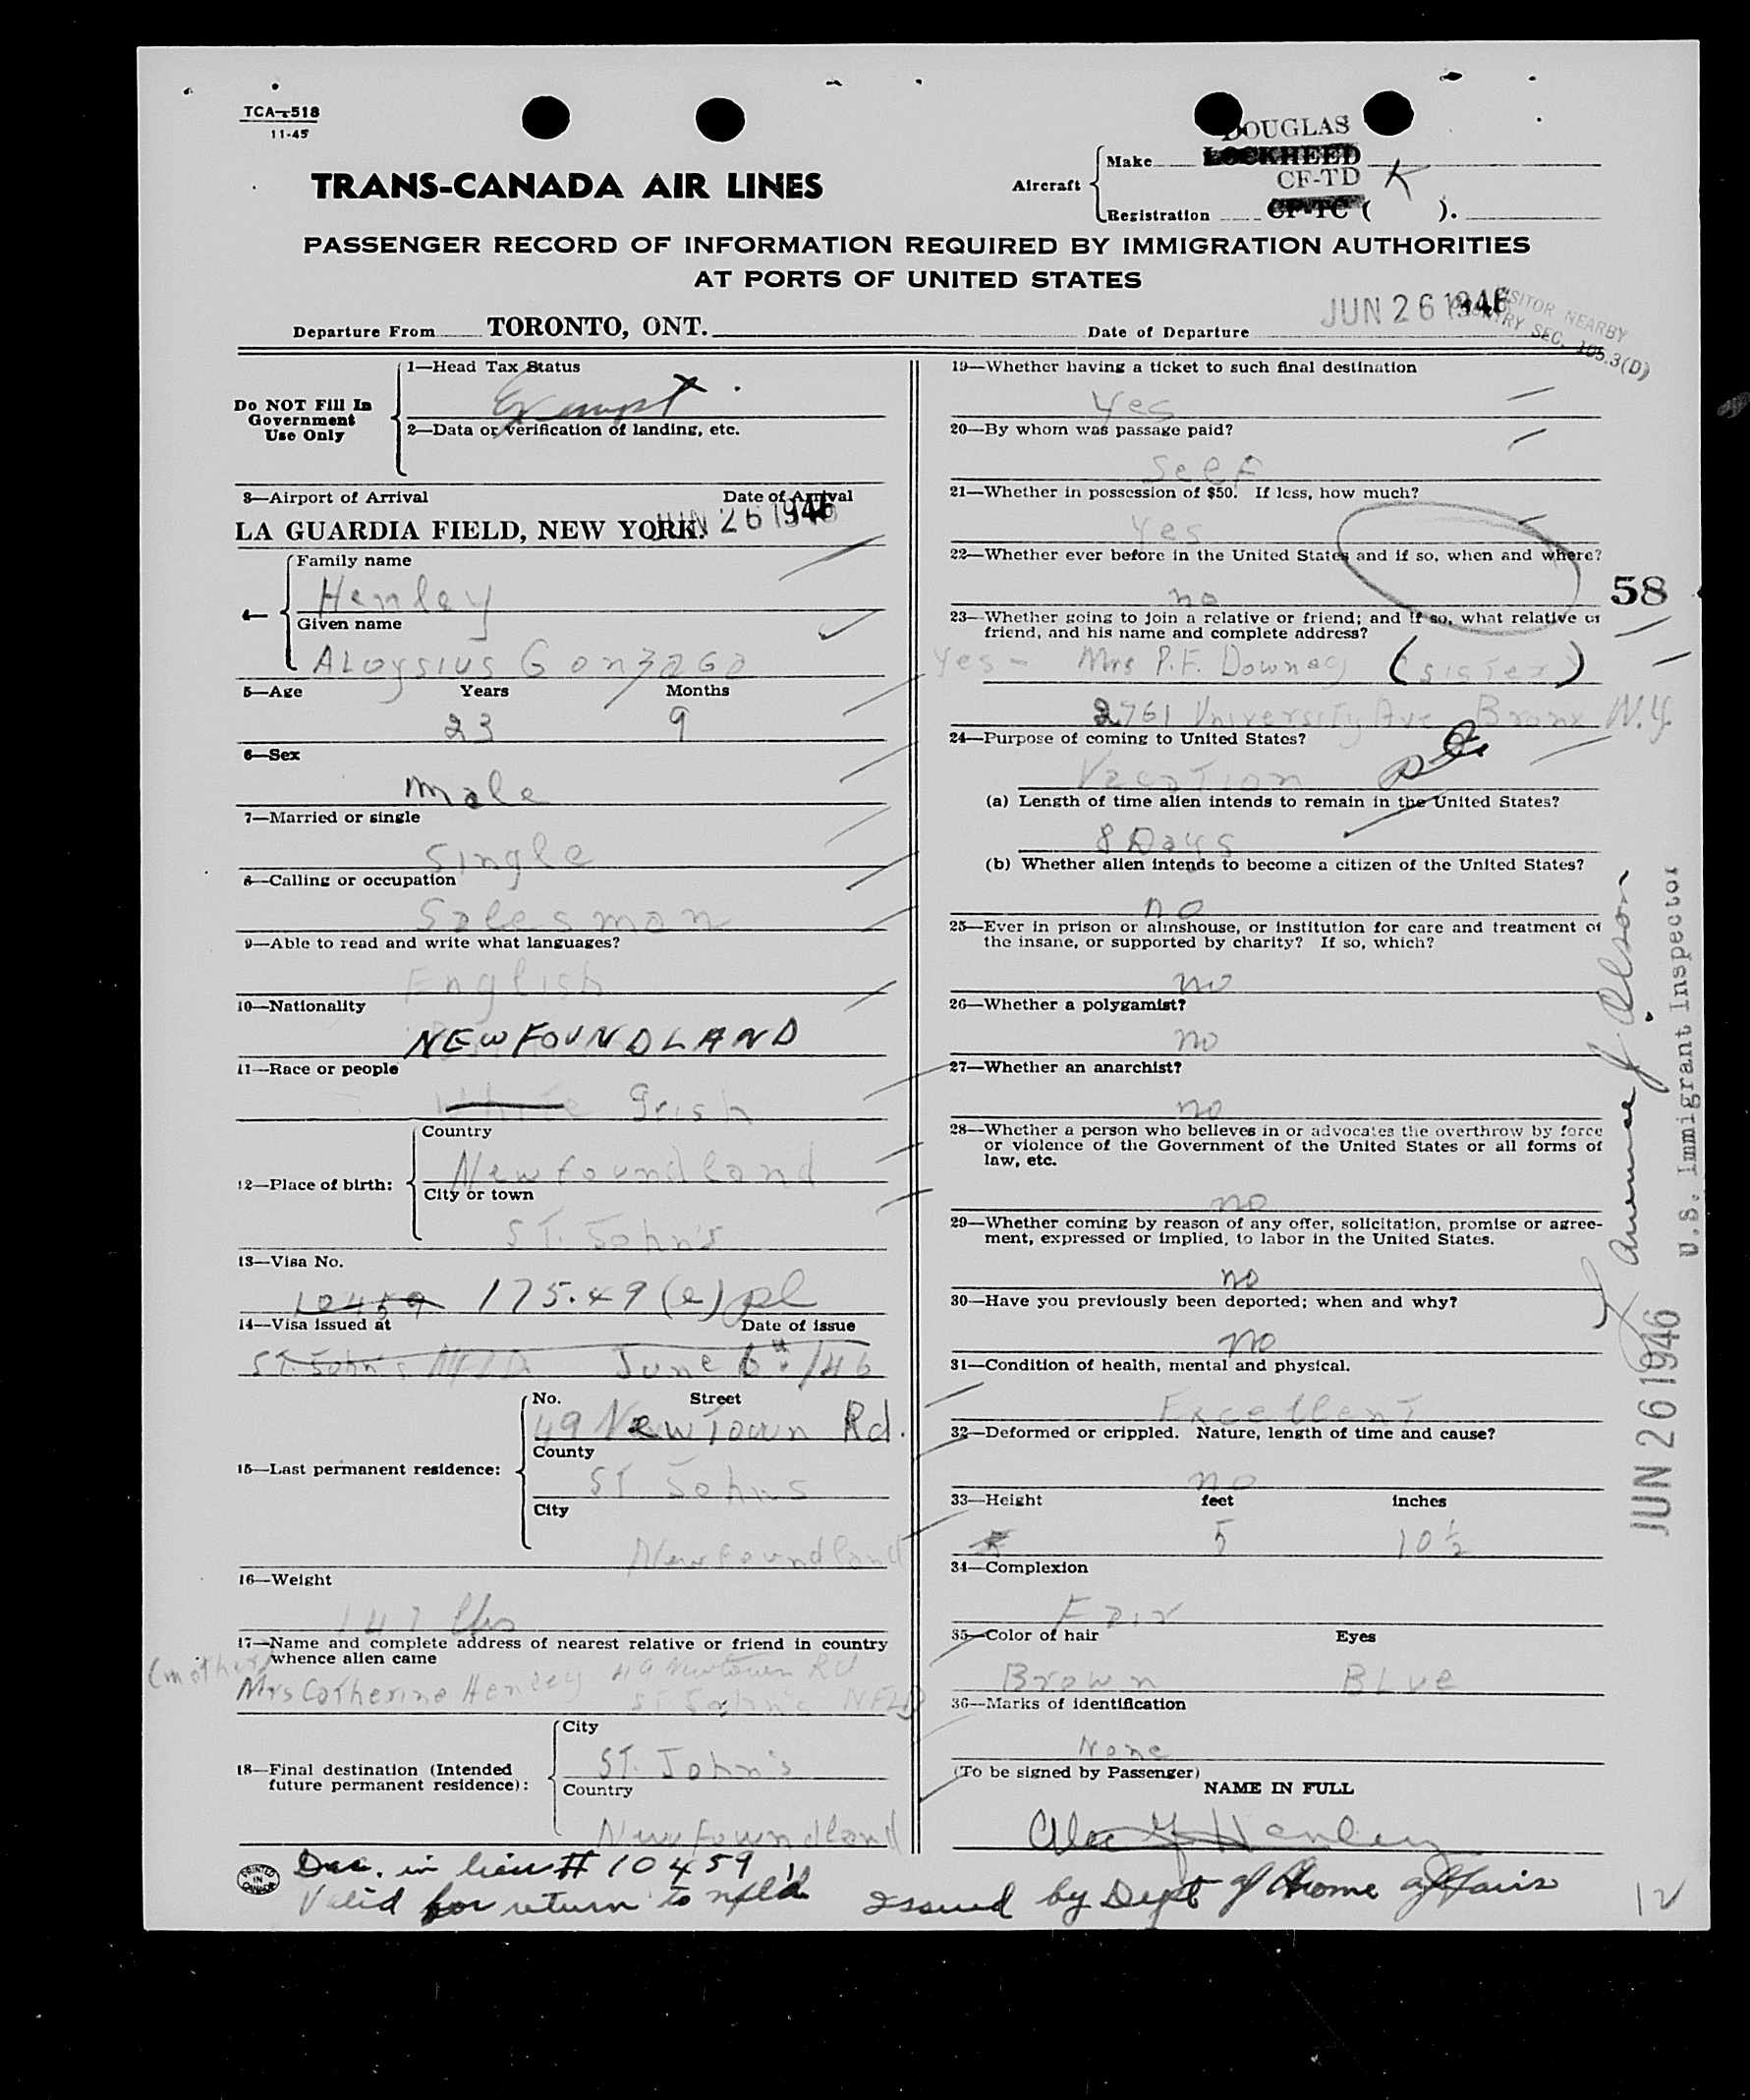 TCA-t518
11-45
TRANS-CANADA AIR LINES
Aircraft
Make
DOUGLAS
LOCKHEED
CF-TD K
Registration CF-TC ( ).
PASSENGER RECORD OF INFORMATION REQUIRED BY IMMIGRATION AUTHORITIES
AT PORTS OF UNITED STATES
Departure From TORONTO, ONT.
Date of Departure JUN 26 1946
VISITOR NEARBY
COUNTRY SEC. 105.3(D)
Do NOT Fill In
Government
Use Only
1—Head Tax Status
Exempt
2—Data or verification of landing, etc.
3—Airport of Arrival Date of Arrival
LA GUARDIA FIELD, NEW YORK. JUN 26 1946
4—
Family name
Henley
Given name
ALoysius Gonzaga
5—Age Years Months
23 9
6—Sex
Male
7—Married or single
Single
8—Calling or occupation
Salesman
9—Able to read and write what languages?
English
10—Nationality
NEWFOUNDLAND
11—Race or people
White Irish
12—Place of birth:
Country
Newfoundland
City or town
ST. John's
13—Visa No.
10459 175.49 (e) pl
14—Visa issued at Date of issue
ST. John's NFLD June 6th/46
15—Last permanent residence:
No. Street
49 NewTown Rd.
County
ST Johns
City
Newfoundland
16—Weight
147 lbs
17—Name and complete address of nearest relative or friend in country
whence alien came
(mother)
Mrs Catherine Henley 49 Newtown Rd
ST John's NFLD
18—Final destination (Intended
future permanent residence):
City
ST. John's
Country
Newfoundland
19—Whether having a ticket to such final destination
Yes
20—By whom was passage paid?
Self
21—Whether in possession of $50. If less, how much?
Yes
22—Whether ever before in the United States and if so, when and where?
no
58
23—Whether going to join a relative or friend; and if so, what relative or
friend, and his name and complete address?
Yes - Mrs P.F. Downey (sister)
2761 University Ave Bronx N.Y.
24—Purpose of coming to United States?
Vacation
(a) Length of time alien intends to remain in the United States?
8 Days
(b) Whether alien intends to become a citizen of the United States?
no
25—Ever in prison or almshouse, or institution for care and treatment of
the insane, or supported by charity? If so, which?
no
26—Whether a polygamist?
no
27—Whether an anarchist?
no
28—Whether a person who believes in or advocates the overthrow by force
or violence of the Government of the United States or all forms of
law, etc.
no
29—Whether coming by reason of any offer, solicitation, promise or agree-
ment, expressed or implied, to labor in the United States.
no
30—Have you previously been deported; when and why?
no
31—Condition of health, mental and physical.
Excellent
32—Deformed or crippled. Nature, length of time and cause?
no
33—Height feet inches
5 10 ½
34—Complexion
Fair
35—Color of hair Eyes
Brown BLue
36—Marks of identification
None
(To be signed by Passenger)
NAME IN FULL
Henley
U.S. Immigrant Inspector
JUN 26 1946
PRINTED
IN
CANADA
Doc. in lieu # 10459
Valid for return to nfld. Issued by Dept of Home Affairs
12